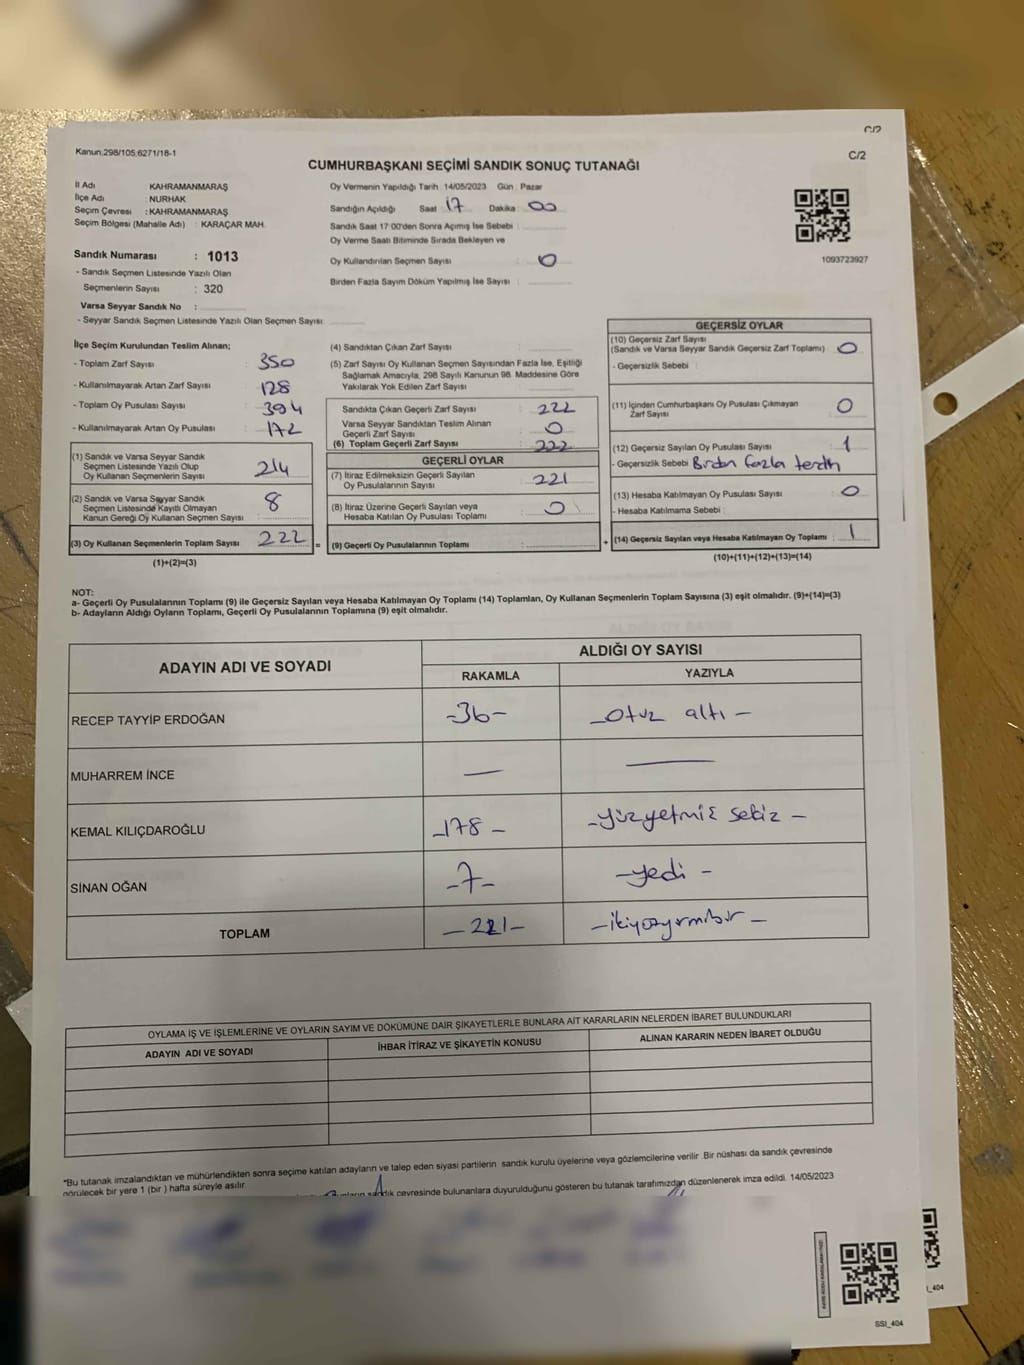 C/2
Kanun;298/105;6271/18-1
C/2
CUMHURBAŞKANI SEÇİMİ SANDIK SONUÇ TUTANAĞI
İl Adı KAHRAMANMARAŞ
İlçe Adı : NURHAK
Seçim Çevresi : KAHRAMANMARAŞ
Seçim Bölgesi (Mahalle Adı) : KARAÇAR MAH.
Oy Vermenin Yapıldığı Tarih 14/05/2023 Gün : Pazar
Sandığın Açıldığı Saat 17 Dakika : 00
Sandık Saat 17:00'den Sonra Açımış İse Sebebi :
Oy Verme Saati Bitiminde Sırada Bekleyen ve
Oy Kullandırılan Seçmen Sayısı : 0
Birden Fazla Sayım Döküm Yapılmış İse Sayısı :
1093723927
Sandık Numarası : 1013
- Sandık Seçmen Listesinde Yazılı Olan
Seçmenlerin Sayısı : 320
Varsa Seyyar Sandık No :
- Seyyar Sandık Seçmen Listesinde Yazılı Olan Seçmen Sayısı:
İlçe Seçim Kurulundan Teslim Alınan;
- Toplam Zarf Sayısı : 350
- Kullanılmayarak Artan Zarf Sayısı : 128
- Toplam Oy Pusulası Sayısı : 394
- Kullanılmayarak Artan Oy Pusulası : 172
(1) Sandık ve Varsa Seyyar Sandık
Seçmen Listesinde Yazılı Olup
Oy Kullanan Seçmenlerin Sayısı 214
(2) Sandık ve Varsa Seyyar Sandık
Seçmen Listesinde Kayıtlı Olmayan
Kanun Gereği Oy Kullanan Seçmen Sayısı 8
(3) Oy Kullanan Seçmenlerin Toplam Sayısı 222 =
(1)+(2)=(3)
(4) Sandıktan Çıkan Zarf Sayısı :
(5) Zarf Sayısı Oy Kullanan Seçmen Sayısından Fazla İse, Eşitliği
Sağlamak Amacıyla, 298 Sayılı Kanunun 98. Maddesine Göre
Yakılarak Yok Edilen Zarf Sayısı
Sandıkta Çıkan Geçerli Zarf Sayısı : 222
Varsa Seyyar Sandıktan Teslim Alınan
Geçerli Zarf Sayısı 0
(6) Toplam Geçerli Zarf Sayısı : 222
GEÇERLİ OYLAR
(7) İtiraz Edilmeksizin Geçerli Sayılan
Oy Pusulalarının Sayısı : 221
(8) İtiraz Üzerine Geçerli Sayılan veya
Hesaba Katılan Oy Pusulası Toplamı 0
(9) Geçerli Oy Pusulalarının Toplamı : +
GEÇERSİZ OYLAR
(10) Geçersiz Zarf Sayısı
(Sandık ve Varsa Seyyar Sandık Geçersiz Zarf Toplamı) : 0
- Geçersizlik Sebebi :
(11) İçinden Cumhurbaşkanı Oy Pusulası Çıkmayan
Zarf Sayısı : 0
(12) Geçersiz Sayılan Oy Pusulası Sayısı : 1
- Geçersizlik Sebebi Birden fazla tercih
(13) Hesaba Katılmayan Oy Pusulası Sayısı : 0
- Hesaba Katılmama Sebebi :
(14) Geçersiz Sayılan veya Hesaba Katılmayan Oy Toplamı : 1
(10)+(11)+(12)+(13)=(14)
NOT:
a- Geçerli Oy Pusulalarının Toplamı (9) ile Geçersiz Sayılan veya Hesaba Katılmayan Oy Toplamı (14) Toplamları, Oy Kullanan Seçmenlerin Toplam Sayısına (3) eşit olmalıdır. (9)+(14)=(3)
b- Adayların Aldığı Oyların Toplamı, Geçerli Oy Pusulalarının Toplamına (9) eşit olmalıdır.
ADAYIN ADI VE SOYADI ALDIĞI OY SAYISI
RAKAMLA YAZIYLA
RECEP TAYYİP ERDOĞAN -36- -otuz altı-
MUHARREM İNCE — —
KEMAL KILIÇDAROĞLU -178- -yüzyetmiş sekiz-
SİNAN OĞAN -7- -yedi-
TOPLAM -221- -ikiyüzyirmibir-
OYLAMA İŞ VE İŞLEMLERİNE VE OYLARIN SAYIM VE DÖKÜMÜNE DAİR ŞİKAYETLERLE BUNLARA AİT KARARLARIN NELERDEN İBARET BULUNDUKLARI
ADAYIN ADI VE SOYADI İHBAR İTİRAZ VE ŞİKAYETİN KONUSU ALINAN KARARIN NEDEN İBARET OLDUĞU
*Bu tutanak imzalandıktan ve mühürlendikten sonra seçime katılan adayların ve talep eden siyasi partilerin sandık kurulu üyelerine veya gözlemcilerine verilir. Bir nüshası da sandık çevresinde
görülecek bir yere 1 (bir) hafta süreyle asılır.
sandık çevresinde bulunanlara duyurulduğunu gösteren bu tutanak tarafımızdan düzenlenerek imza edildi. 14/05/2023
SSI_404